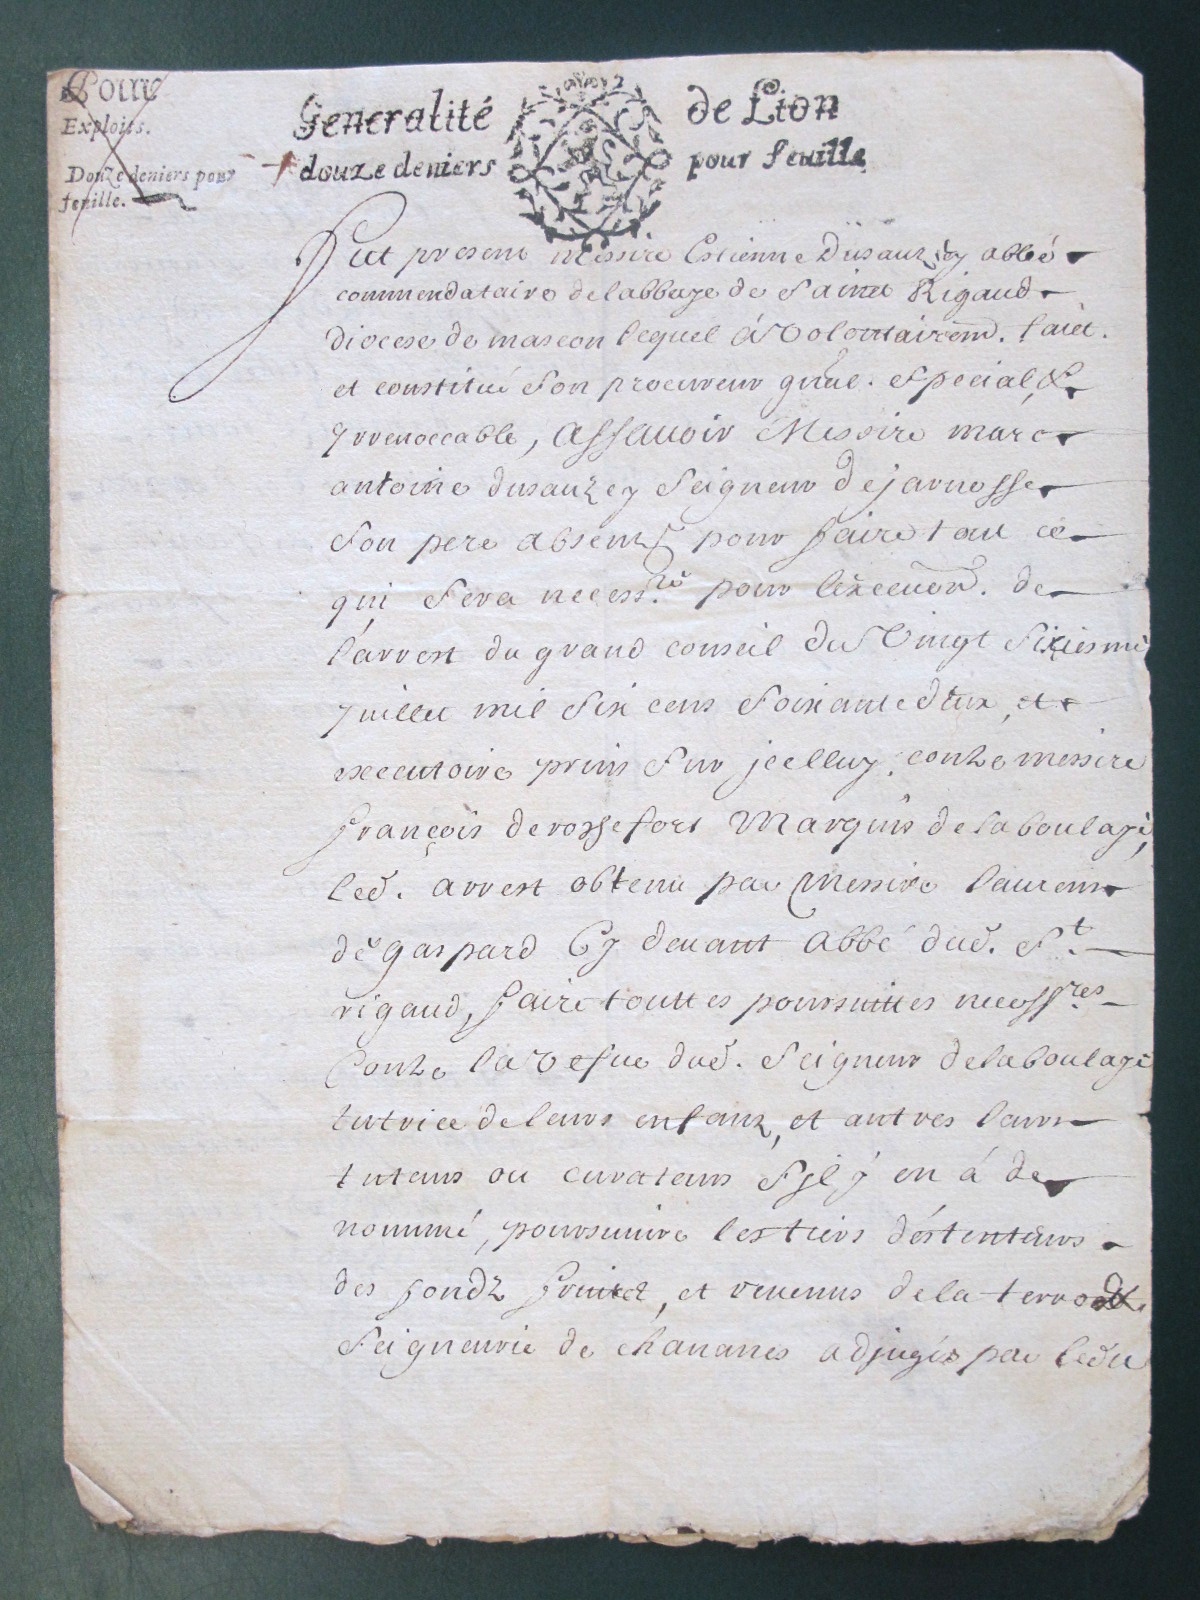 Pour
Exploits.
Douze deniers pour
feuille.
Generalité de Lion
douze deniers pour feuille
Fut present Messire Estienne Dusauzey abbé
commendataire de labbaye de Sainct Rigaud
diocese de mascon lequel á Volontairemt. faict
et constitué son procureur gñal. special &
Yrrevoccable, assauoir Messire marc
antoine dusauzey seigneur dejarnosse
son pere absent pour faire tout ce
qui sera necess.re pour lexecuõn. de
larrest du grand conseil du Vingt sixiesme
Juillet mil six cens soixante deux, et
executoire prins sur jcelluy, contre messire
françois derossefort Marquis delaboulaye,
led. arrest obtenu par Messire laurens
dĕ gaspard Cy deuant abbé dud. St
rigaud, faire touttes poursuittes necessres
Contre la Vefue dud. seigneur delaboulaye
tutrice deleurs enfanz, et autres leurs
tuteurs ou curateurs sjl ÿ en á de
nommé, poursuiure les tiers déstenteurs
des fondz fruictz, et reuenus dela terre &
seigneurie de chananes adjugés par ledit